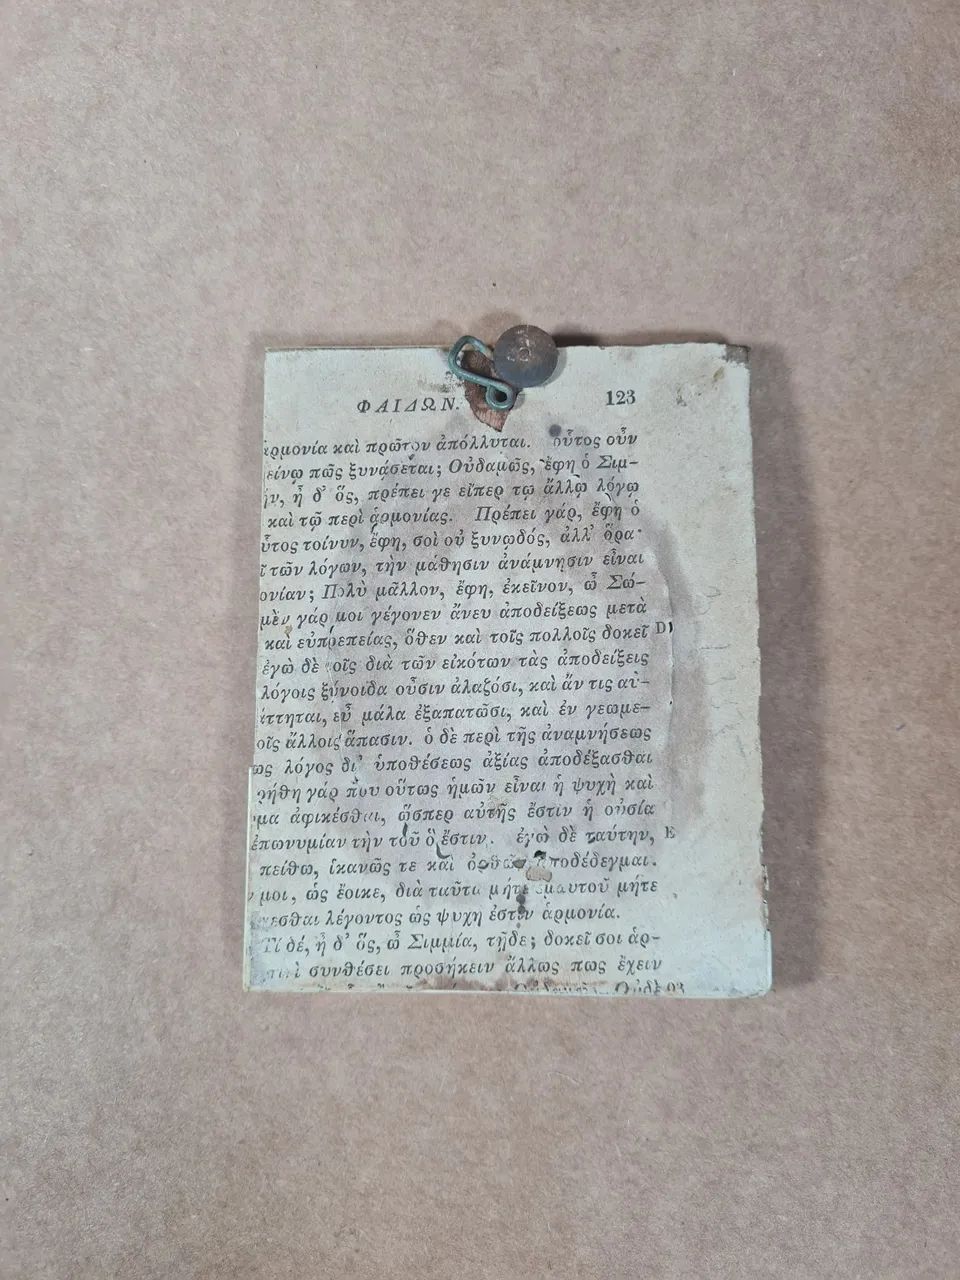 ΦΑΙΔΩΝ. 123
ἁρμονία καὶ πρῶτον ἀπόλλυται. οὗτος οὖν
είνῳ πῶς ξυνᾴσεται; Οὐδαμῶς, ἔφη ὁ Σιμ-
ήν, ἦ δ' ὅς, πρέπει γε εἴπερ τῳ ἄλλῳ λόγῳ
καὶ τῷ περὶ ἁρμονίας. Πρέπει γάρ, ἔφη ὁ
ὗτος τοίνυν, ἔφη, σοὶ οὐ ξυνῳδός, ἀλλ' ὅρα
τῶν λόγων, τὴν μάθησιν ἀνάμνησιν εἶναι
ονίαν; Πολὺ μᾶλλον, ἔφη, ἐκεῖνον, ὦ Σώ-
μὲν γάρ μοι γέγονεν ἄνευ ἀποδείξεως μετὰ
καὶ εὐπρεπείας, ὅθεν καὶ τοῖς πολλοῖς δοκεῖ D
ἐγὼ δὲ τοῖς διὰ τῶν εἰκότων τὰς ἀποδείξεις
λόγοις ξύνοιδα οὖσιν ἀλαζόσι, καὶ ἄν τις αὐ-
άττηται, εὖ μάλα ἐξαπατῶσι, καὶ ἐν γεωμε-
οῖς ἄλλοις ἅπασιν. ὁ δὲ περὶ τῆς ἀναμνήσεως
ως λόγος δι' ὑποθέσεως ἀξίας ἀποδέξασθαι
ρήθη γάρ που οὕτως ἡμῶν εἶναι ἡ ψυχὴ καὶ
μα ἀφικέσθαι, ὥσπερ αὐτῆς ἔστιν ἡ οὐσία
ἐπωνυμίαν τὴν τοῦ ὃ ἔστιν. ἐγὼ δὲ ταύτην, E
πείθω, ἱκανῶς τε καὶ ὀρθῶς ἀποδέδεγμαι.
μοι, ὡς ἔοικε, διὰ ταῦτα μήτε ἐμαυτοῦ μήτε
εσθαι λέγοντος ὡς ψυχή ἐστιν ἁρμονία.
Τί δέ, ἦ δ' ὅς, ὦ Σιμμία, τῇδε; δοκεῖ σοι ἁρ-
συνθέσει προσήκειν ἄλλως πως ἔχειν